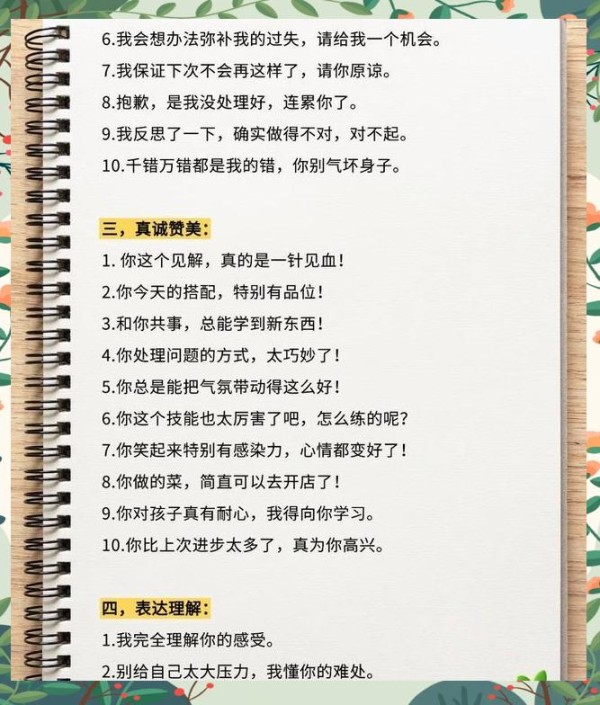 6.我会想办法弥补我的过失，请给我一个机会。
7.我保证下次不会再这样了，请你原谅。
8.抱歉，是我没处理好，连累你了。
9.我反思了一下，确实做得不对，对不起。
10.千错万错都是我的错，你别气坏身子。
三，真诚赞美：
1. 你这个见解，真的是一针见血！
2.你今天的搭配，特别有品位！
3.和你共事，总能学到新东西！
4.你处理问题的方式，太巧妙了！
5.你总是能把气氛带动得这么好！
6.你这个技能也太厉害了吧，怎么练的呢？
7.你笑起来特别有感染力，心情都变好了！
8.你做的菜，简直可以去开店了！
9.你对孩子真有耐心，我得向你学习。
10.你比上次进步太多了，真为你高兴。
四，表达理解：
1.我完全理解你的感受。
2.别给自己太大压力，我懂你的难处。